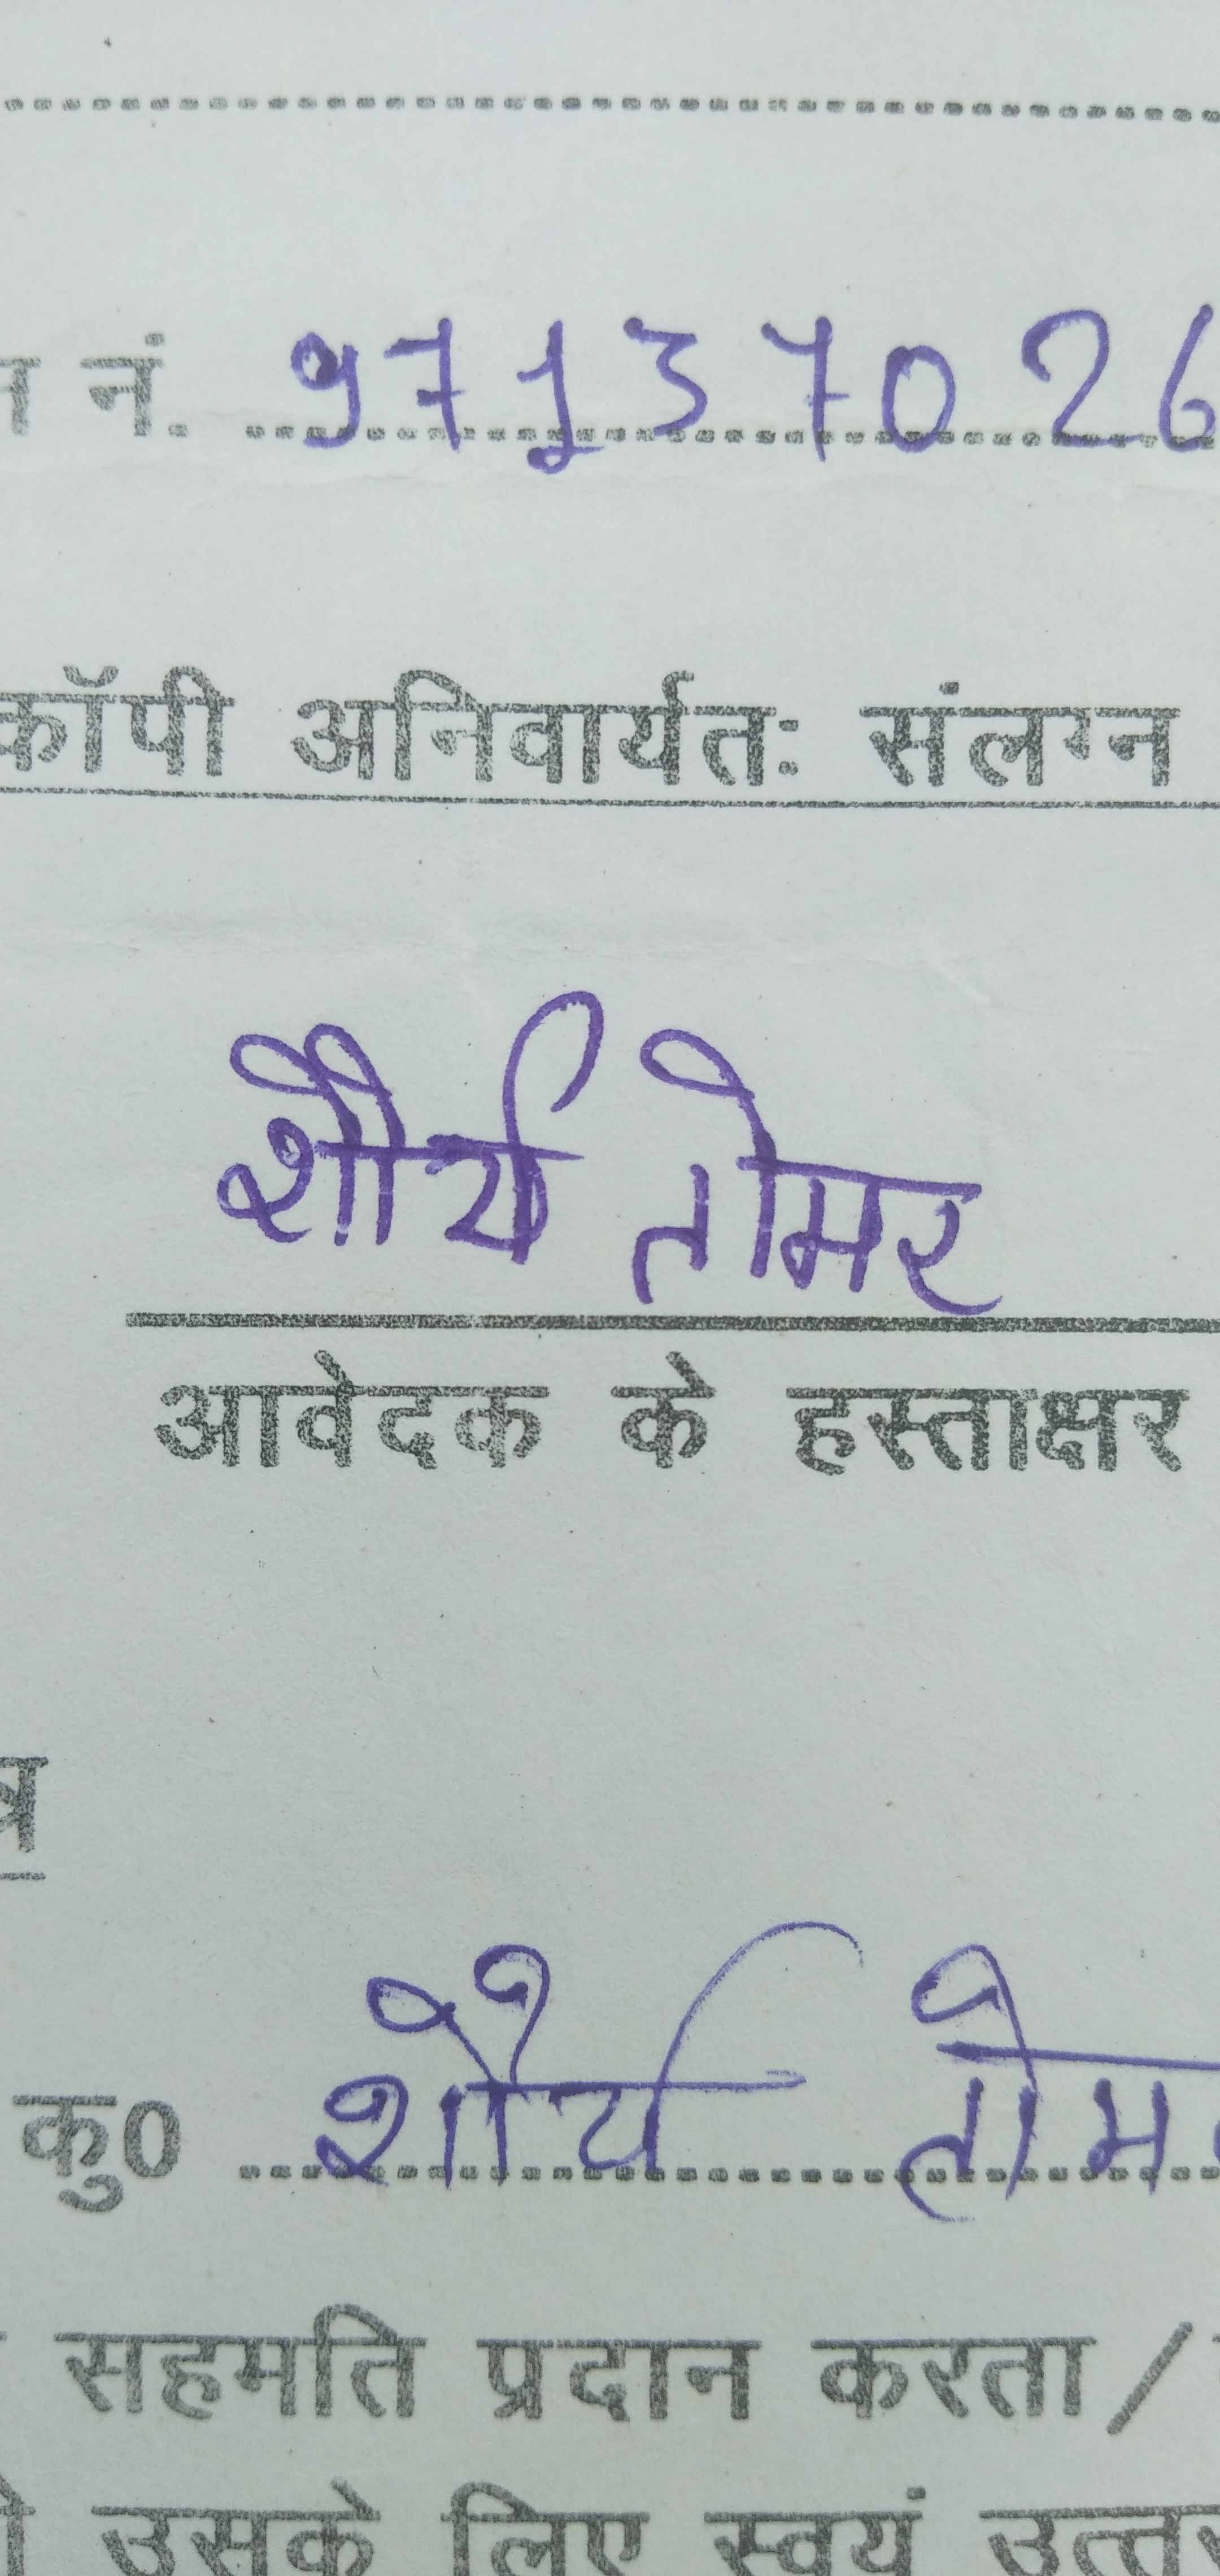 न नं. 97137026
कॉपी अनिवार्यतः संलग्न
शौर्य तोमर
आवेदक के हस्ताक्षर
त्र
कु0 शौर्य तोम
सहमति प्रदान करता /
उसके लिए स्वयं उत्त